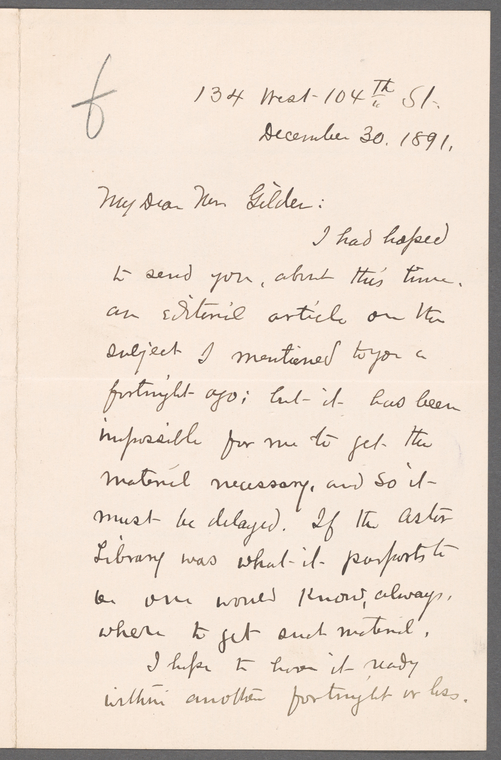 134 West 104th St.
December 30. 1891.
My Dear Mr. Gilder:
I had hoped
to send you, about this time,
an editorial article on the
subject I mentioned to you a
fortnight ago; but it has been
impossible for me to get the
material necessary, and so it
must be delayed. If the Astor
Library was what it purports to
be one would know, always,
where to get such material.
I hope to have it ready
within another fortnight or less.